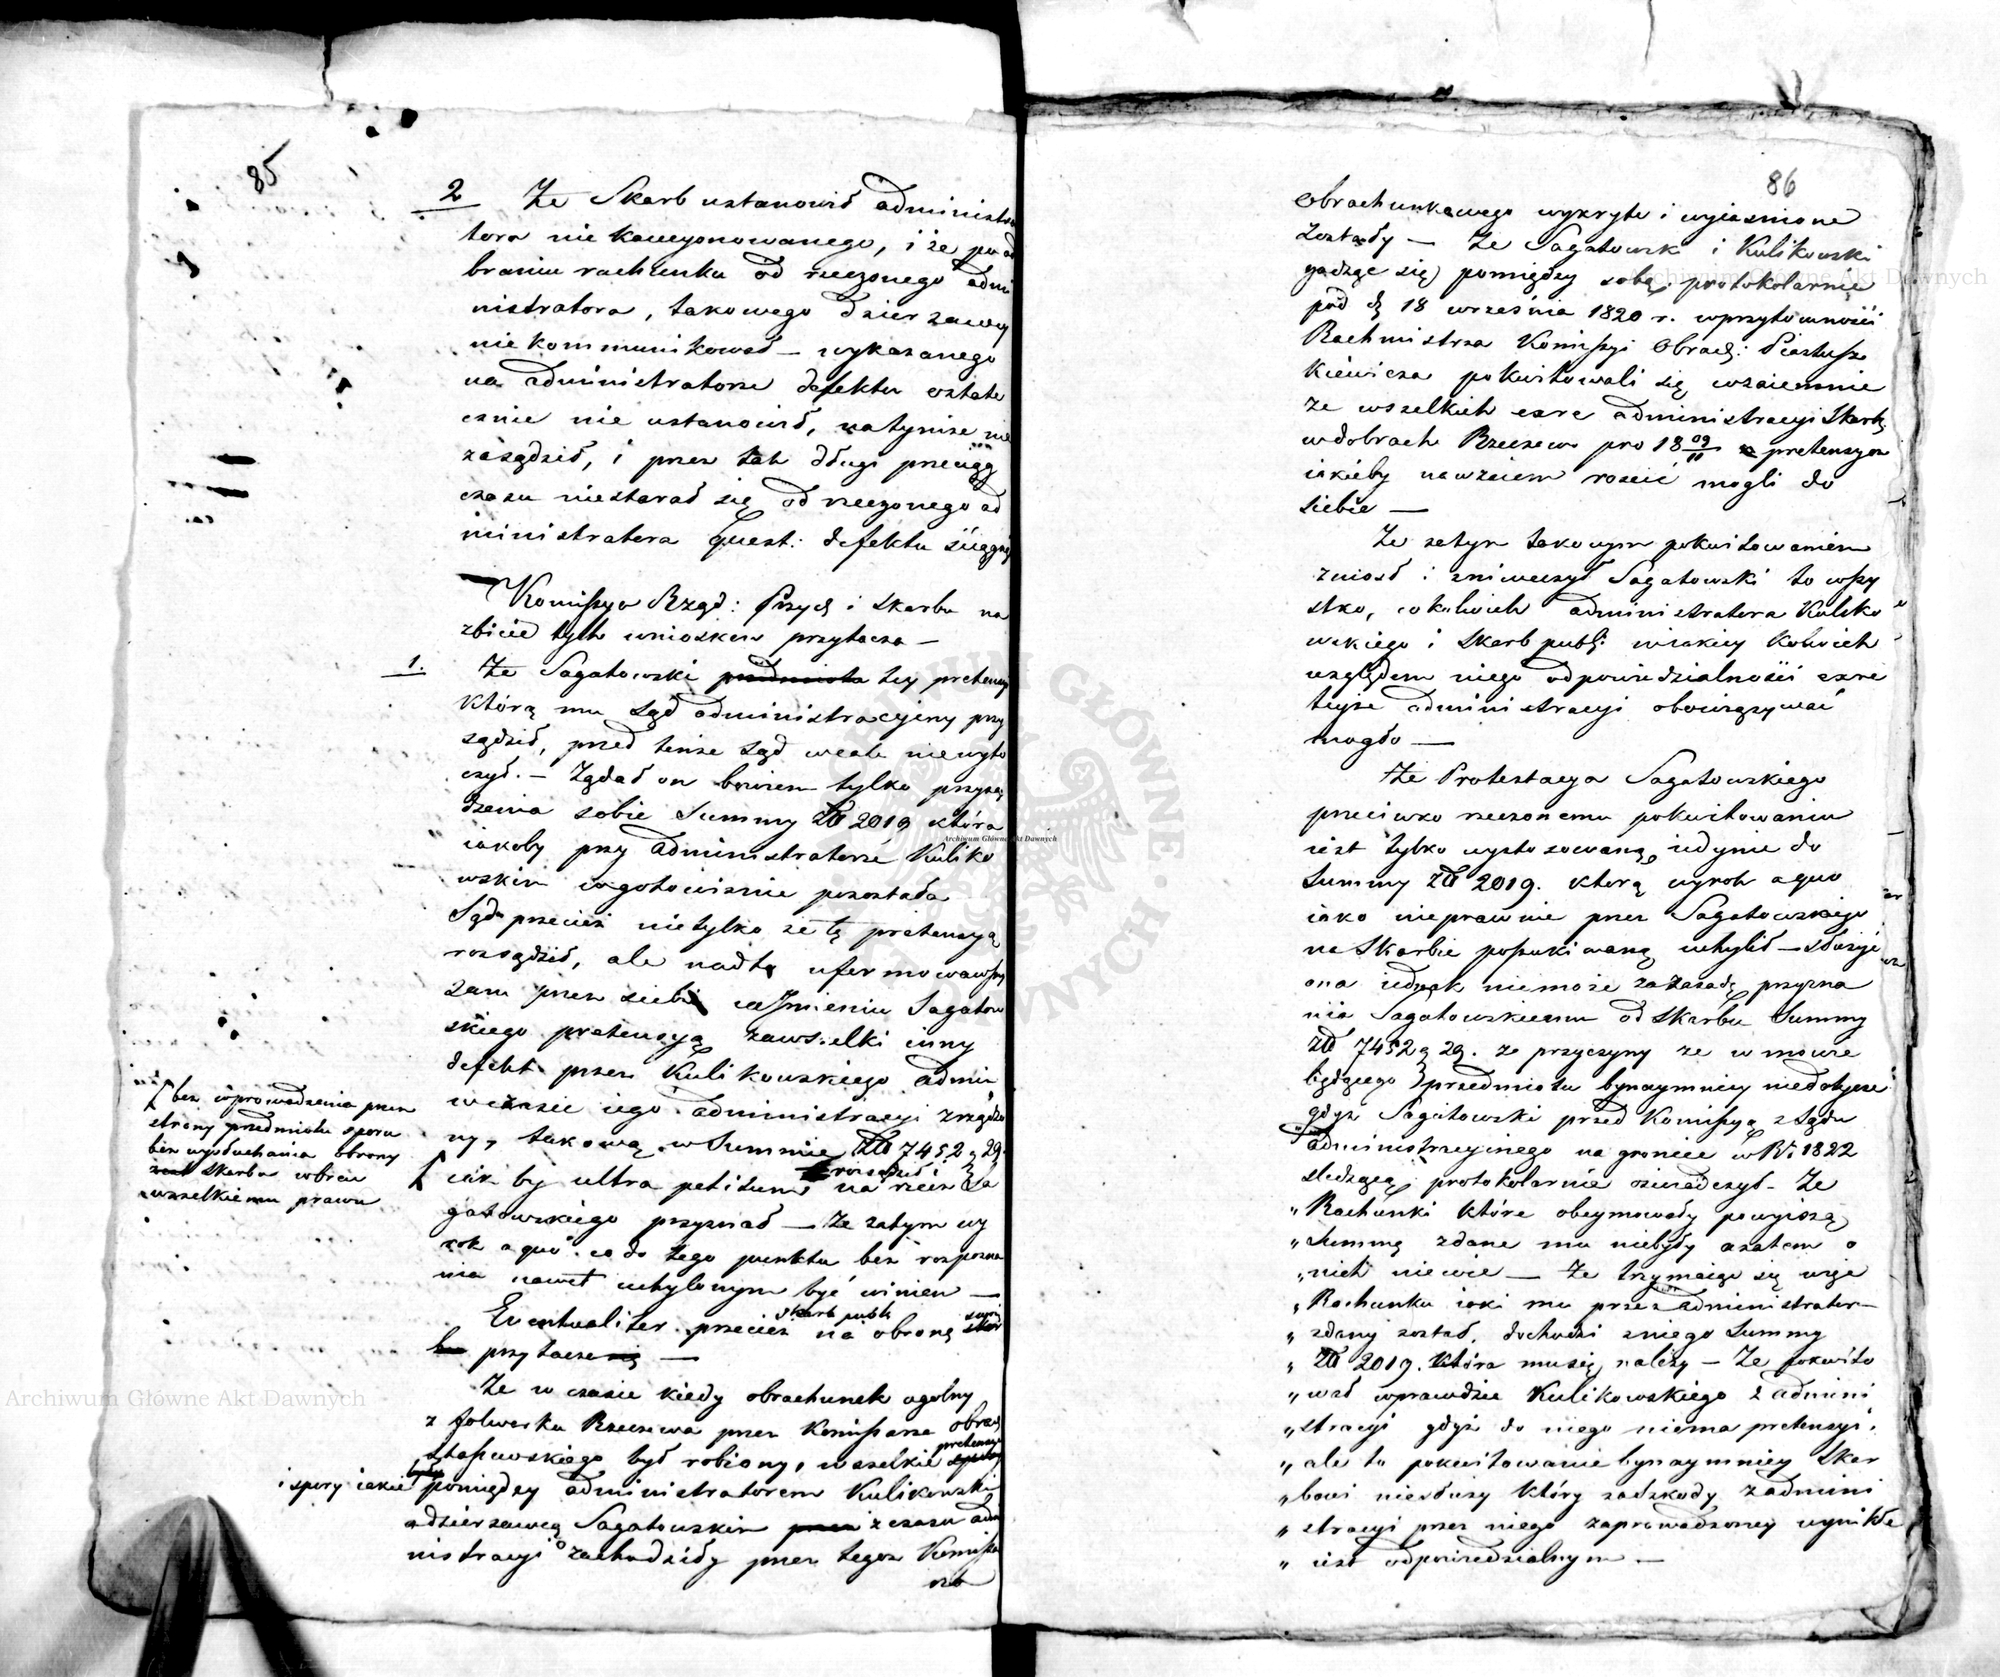 85
2 Że Skarb ustanowił administra
tora nie kaucyonowanego, i że po od
braniu rachunku od rzeczonego admi
nistratora, takowego dzierzawcy
niekommunikował – wykazanego
na administratorze defektu ostate
cznie nie ustanowił, natymże nie
zasądził, i przez tak długi przeciąg
czasu niestarał się od rzeczonego ad
ministratora quest: defektu
Kommissya Rząd: Przych i Skarbu na
zbicie tych wniosków przytacza –
1. Że Sagatowski przedmiotu tey pretensyi
którą mu Sąd administracyjny przy
sądził, przed tenże Sąd wcale niewyto
czył. – Żądał on bowiem tylko przysą
dzenia sobie Summy Zł 2019 która
iakoby przy administratorze Kuliko
wskim w gotowiznie pozostała
Sąd przecież nietylko że tę pretensyą
rozsądził, ale nadto uformowawszy
sam przez siebie w Imieniu Sagatow
skiego pretensyą zawszelki inny
defekt przez Kulikowskiego admin
w czasie iego administracyi zrządzo
ny, takową w Summie Zł 7452 g 29.
iak by ultra petitum rozsądził i na rzecz Sa
gatowskiego przyznał – Że zatym wy
rok a quo co do tego punktu bez rozpozna
nia nawet uchylonym być winien –
Eventualiter przecież Skarb publ: na obronę swoię
przytacza –
Że w czasie kiedy obrachunek ogólny
z folwarku Rzeczewa przez Komissarza obrach
był robiony, wszelkie pretensye
i spory iakie pomiędzy administratorem Kulikowskim
a dzierzawcą Sagatowskim z czasu adm
nistracyi zachodziły przez tegoż Komissa
rza
bez wprowadzenia przez
strony przedmiotu sporu
bez wysłuchania obrony
Skarbu wbrew
wszelkiemu prawu
86
obrachunkowego wykryte i wyiasnione
zostały – Że Sagatowsk i Kulikowski
godząc się pomiędzy sobą protokolarnie
pod d 18 września 1820 r. w przytomności
Rachmistrza Komissyi Obrach: Piastusz
kiewicza pokwitowali się wzaiemnie
ze wszelkich exre administracyi Skarb
w dobrach Rzeczew pro 18 09/11 pretensyow
iakieby nawzaiem rościć mogli do
siebie –
Że zatym takowym pokwitowaniem
zniosł i zniweczył Sagatowski to wszy
stko, cokolwiek administratora Kuliko
wskiego i Skarb publ: w iakiey kolwiek
względem niego odpowiedzialności exre
teyże administracyi obowiązywać
mogło –
Że Protestacya Sagatowskiego
przeciwko rzeczonemu pokwitowaniu
iest tylko wystosowaną iedynie do
Summy Zł 2019. którą wyrok a quo
iako nieprawnie przez Sagatowskiego
na Skarbie poszukiwaną uchylił – służyć
ona iednak niemoże za zasadę przyzna
nia Sagatowskiemu od Skarbu Summy
Zł 7452 g 29. ze przyczyny że w mowie
będącego przedmiotu bynaymniey niedotycze
gdyż Sagatowski przed Komissyą z Sądu
administracyinego na groncie w R. 1822
sledzącą protokolarnie oswiadczył – Że
„Rachunki które obeymowały powyższą
„Summę zdane mu niebyły a zatem o
„nich niewie – Że trzymaiąc się więc
„Rachunku iaki mu przez administrator
„zdany został, dochodzi z niego Summy
„Zł 2019. która musię należy – Że pokwito
„wał wprawdzie Kulikowskiego z admini
„stracyi gdyż do niego niema pretensyi,
„ale to pokwitowanie bynaymniey Skar
„bowi niesłuży który za szkody z admini
„stracyi przez niego zaprowadzoney wynikłe
„iest odpowiedzialnym –